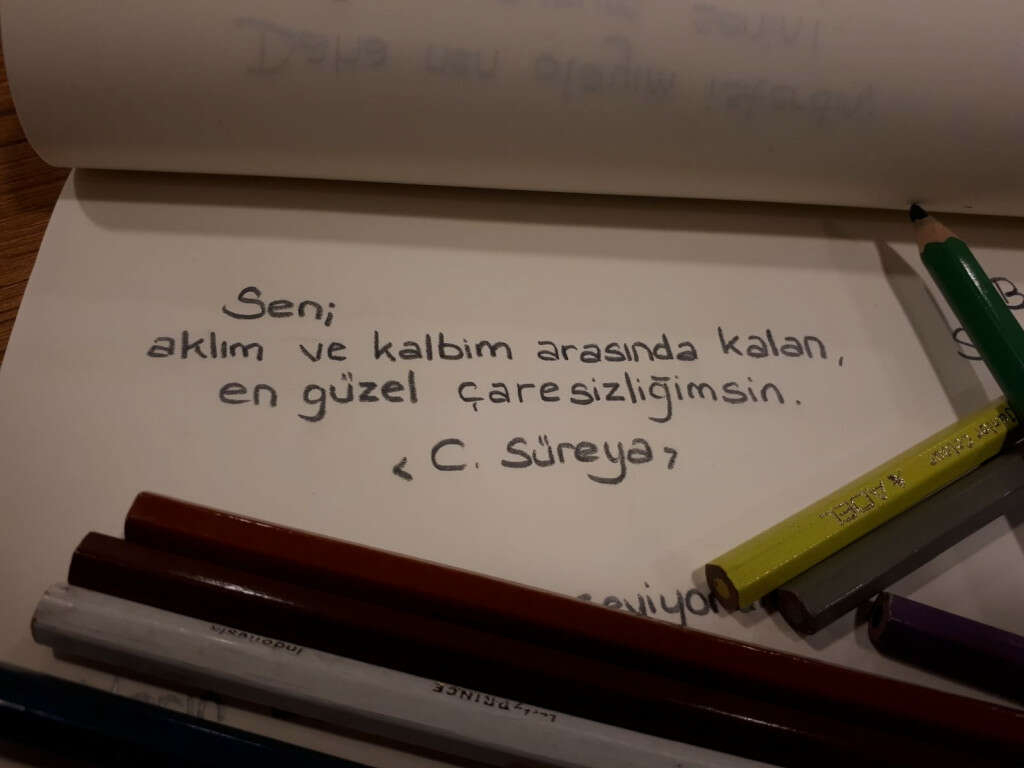 Sen;
aklım ve kalbim arasında kalan,
en güzel çaresizliğimsin.
< C. Süreya >
B
S
ADEL
seviyor
indonesia
PRINCE